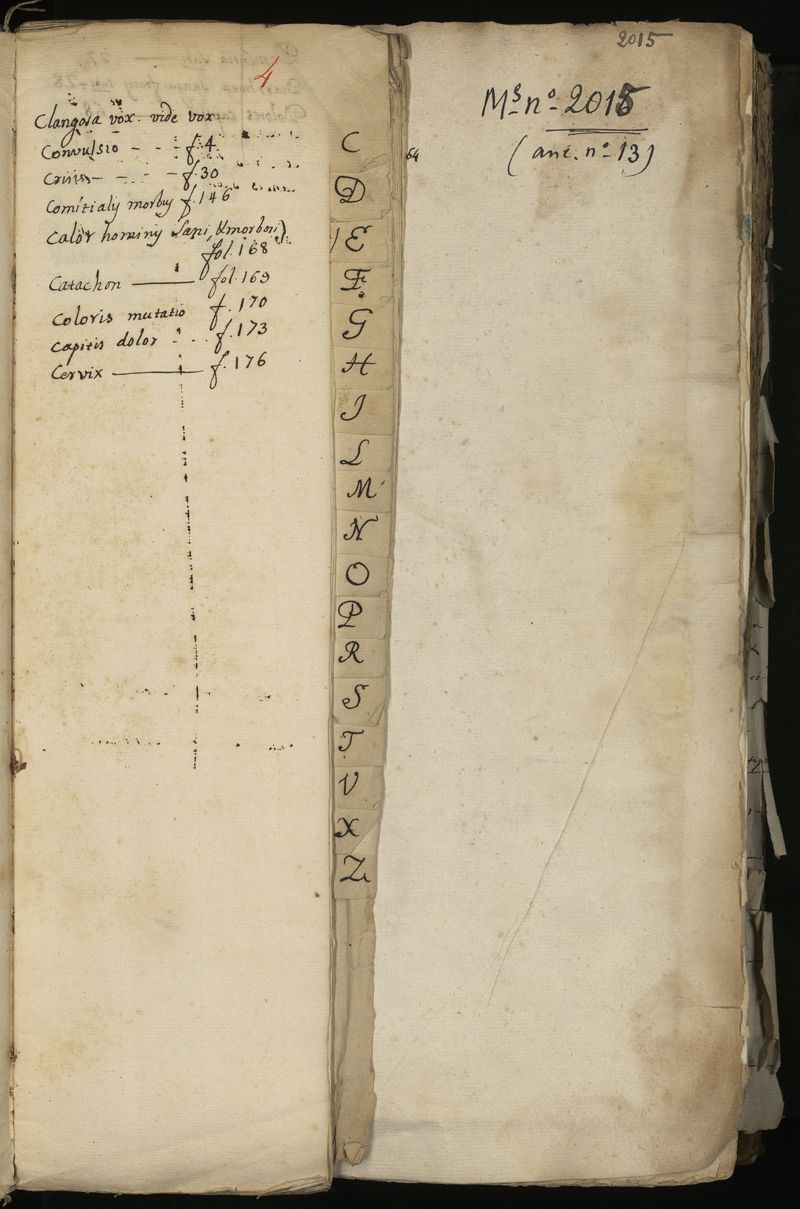 4
Clangosa vox. vide vox
Convulsio - - - f. 4.
Crisis - - - f. 30
Comitialy morby f. 146
Calor hominy sani, & morbosi).
fol. 168
Catachon fol. 169
Coloris mutatio f. 170
Capitis dolor - - f. 173
Cervix f. 176
C
D
E
F
G
H
I
L
M
N
O
P
R
S
T
V
X
Z
2015
Ms. no. 2015
(anc. no. 13)